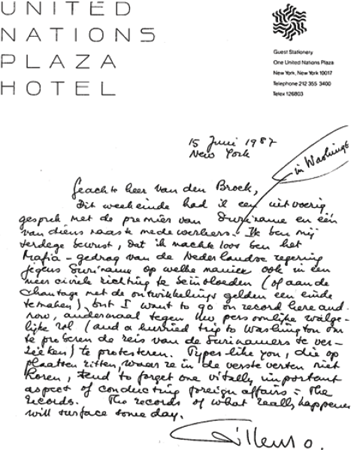 UNITED
NATIONS
PLAZA
HOTEL
Guest Stationery
One United Nations Plaza
New York, New York 10017
Telephone 212 355 3400
Telex 126803
15 Juni 1987
New York
in Washington
Geachte heer Van den Broek,
Dit weekeinde had ik een uitvoerig
gesprek met de premier van Suriname en één
van diens naaste medewerkers. Ik ben mij
terdege bewust, dat ik machteloos ben het
Mafia-gedrag van de Nederlandse regering
jegens Suriname op welke manier ook in een
meer civiele richting te beïnvloeden (of aan de
chantage met de ontwikkelings gelden een einde
te maken), but I want to go on record here and
now, andermaal tegen Uw persoonlijke walge-
lijke rol (and a hurried trip to Washington om
te proberen de reis van de Surinamers te ver-
zieken) te protesteren. Types like you, die op
plaatsen zitten, waar ze in de verste verten niet
horen, tend to forget one vitally important
aspect of conducting foreign affairs = the
records. The records of what really happened
will surface some day.
Willem O.